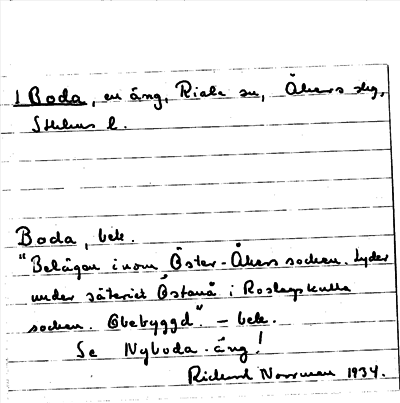 1 Boda, en äng, Riala sn, Åkers skg,
Sthlms l.
Boda, bek.
"Belägen inom Öster-Åkers socken. Lyder
under säteriet Östanå i Roslagskulla
socken. Obebyggd". – bek.
Se Nyboda äng!
Rickard Norrman 1934.